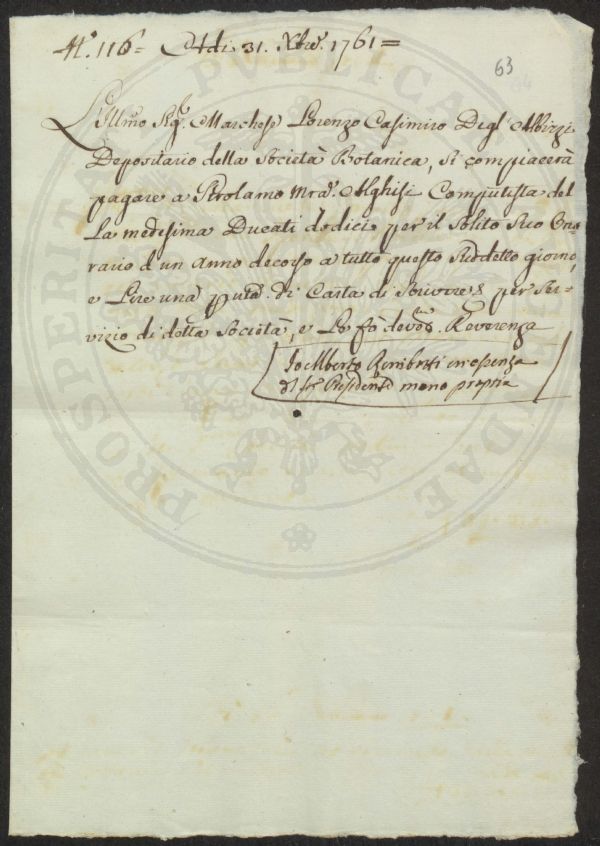 N.° 116= Adi 31. Xbre. 1761=
63
64
L'Illmo Sig.r Marchese Lorenzo Casimiro Degl' Albizzi
Depositario della Società Botanica, si compiacerà
pagare a Girolamo Mra. Alghisi Computista del
la medesima Ducati dodici per il solito suo Ono-
rario d'un anno decorso a tutto questo suddetto giorno,
e Lire una di Carta di Scrivere per Ser-
vizio di detta Società, e Lo fò devo. Reverenza
Io Alberto in assenza
del Sr. Presidente mano propria
PROSPERITATI PVBLICAE